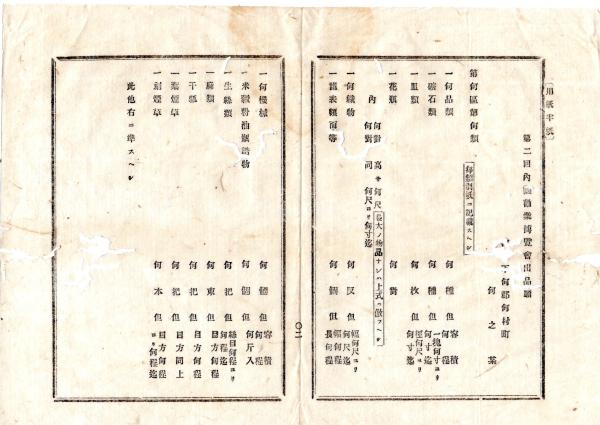 〔用紙半紙〕
第二回內國勸業博覽會出品願
何郡何村町
何之某
第何區第何類
每類別紙ニ記載スヘシ
一何品類 何種但 容積何程
一礦石類 何種但 一塊何寸ヨリ何寸迄
一皿類 何枚但 徑何尺ヨリ何寸迄
一花瓶 何對
內 何對 高サ何尺
何對 同 何尺ヨリ何寸迄
長大ノ物品ナレハ上式ニ倣フヘシ
一何織物 何反但 幅何尺ヨリ何尺迄
一疊表類 何個但 幅何程長何程
一何機械 何個但 容積何程
一米穀粉油類諸物 何個但 何斤入
一生絲類 何把但 總目何程ヨリ何程迄
一麻類 何束但 目方何程
一干瓢 何把但 目方何程
一葉煙草 何把但 目方同上
一刻煙草 何本但 目方何程ヨリ何程迄
此他右ニ準スヘシ
〇二